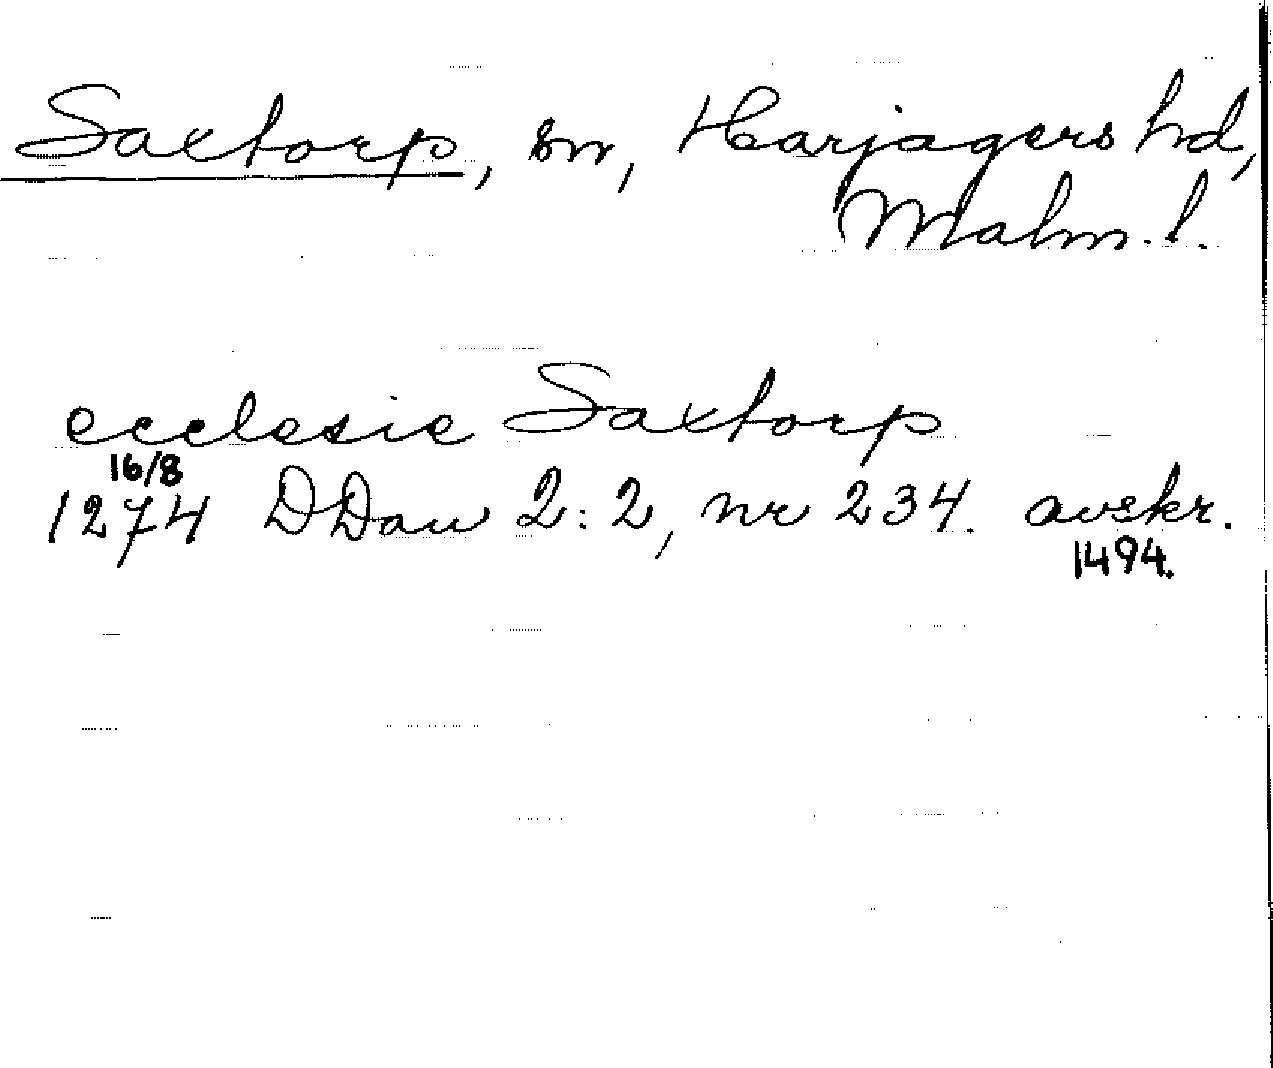 Saxtorp, sn, Harjagers hd,
Malm. l.
ecclesie Saxtorp
16/8
1274 DDan 2:2, nr 234. avskr.
1494.